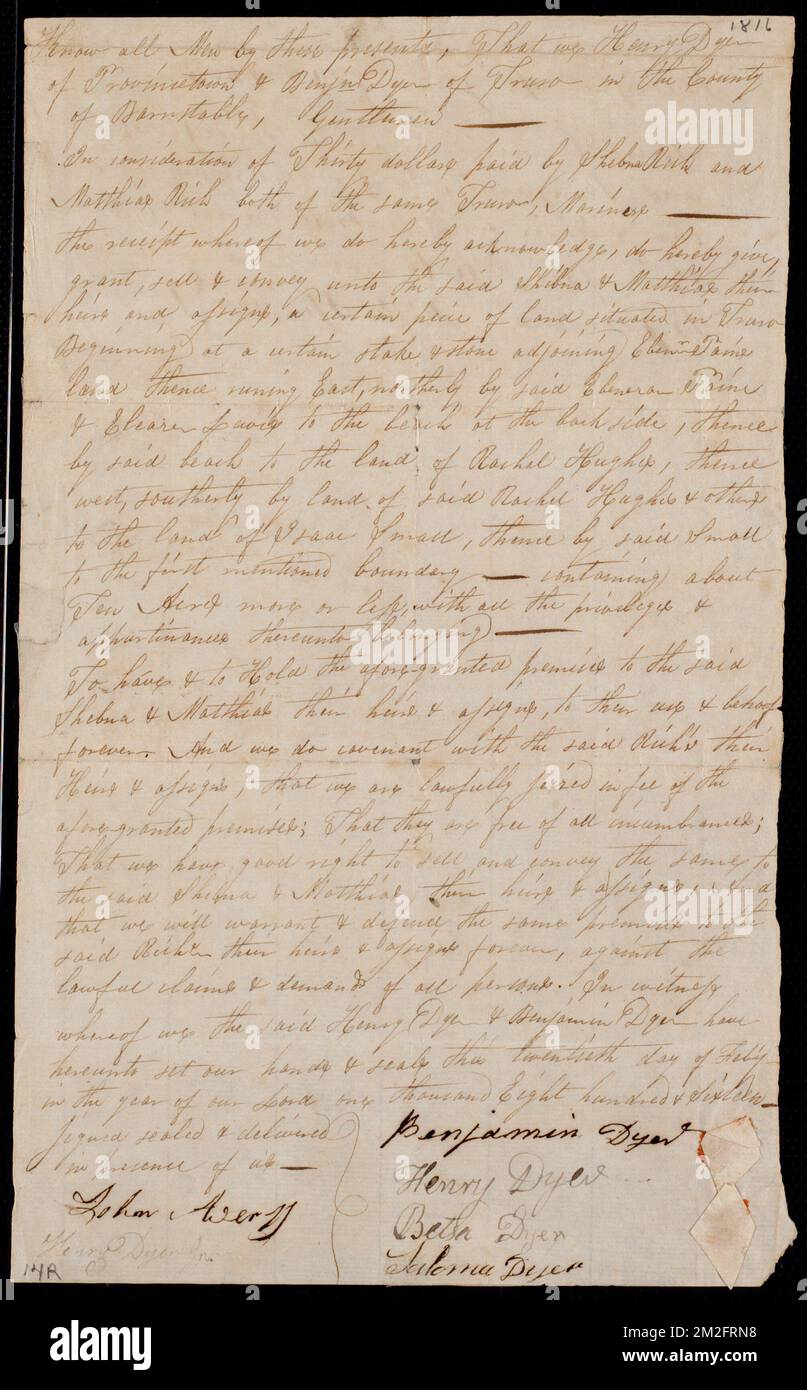 1816
Know all Men by these presents, That we Henry Dyer
of Provincetown & Benjn Dyer of Truro in the County
of Barnstable, Gentlemen
In consideration of Thirty dollars paid by Shebna Rich and
Matthias Rich both of the same Truro, Mariners
the receipt whereof we do hereby acknowledge, do hereby give,
grant, sell & convey unto the said Shebna & Matthias their
heirs and assigns, a certain peice of land situated in Truro
Beginning at a certain stake & stone adjoining Ebenr Paine
land thence runing East, northerly by said Ebenezer Paine
& Eleazer Davis to the beach at the back side, thence
by said beach to the land of Rachel Hughes, thence
west, southerly by land of said Rachel Hughes & others
to the land of Isaac Small, thence by said Small
to the first mentioned boundary — containing about
Ten Acres more or less, with all the privileges &
appurtinances thereunto belonging
To have & to Hold the afore granted premises to the said
Shebna & Matthias their heirs & assigns, to their use & behoof
forever. And we do covenant with the said Rich's their
Heirs & assigns, that we are lawfully seized in fee of the
afore granted premises; That they are free of all incumbrances;
That we have good right to sell and convey the same to
the said Shebna & Matthias their heirs & assigns, and
that we will warrant & defend the same premises to the
said Rich's their heirs & assigns forever, against the
lawful claims & demands of all persons. In witness
whereof we the said Henry Dyer & Benjamin Dyer have
hereunto set our hands & seals this twentieth day of Feby
in the year of our Lord one thousand Eight hundred & Sixteen
Signed sealed & delivered
in presence of us —
John Avery
Henry Dyer Jnr
Benjamin Dyer
Henry Dyer
Betsa Dyer
Saloma Dyer
14R
alamy
Image ID: 2M2FRN8
www.alamy.com